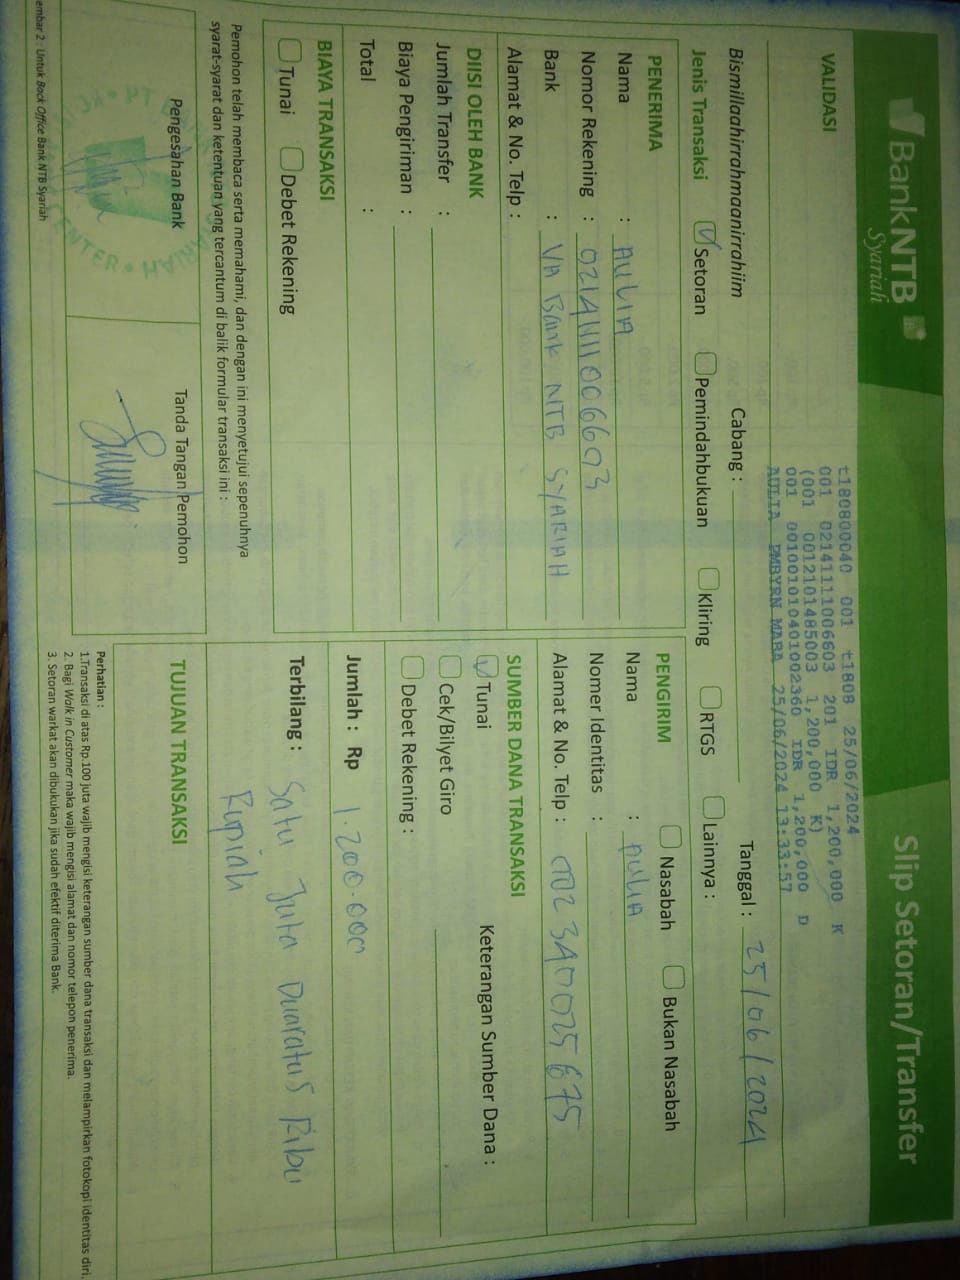 BankNTB
Syariah
Slip Setoran/Transfer
VALIDASI
t180800040 001 t1808 25/06/2024
001 02141111006603 201 IDR 1,200,000 K
(001 0012101485003 1,200,000 K)
001 001001010401002360 IDR 1,200,000 D
AULIA PMBYRN MABA 25/06/2024 13:33:57
Bismillaahirrahmaanirrahiim
Cabang :
Tanggal : 25/06/2024
Jenis Transaksi Setoran Pemindahbukuan Kliring RTGS Lainnya :
PENERIMA
Nama : AULIA
Nomor Rekening : 02141111006603
Bank : VA Bank NTB SYARIAH
Alamat & No. Telp :
PENGIRIM Nasabah Bukan Nasabah
Nama : AULIA
Nomer Identitas :
Alamat & No. Telp :
DIISI OLEH BANK
Jumlah Transfer :
Biaya Pengiriman :
Total :
SUMBER DANA TRANSAKSI
Tunai
Keterangan Sumber Dana :
Cek/Bilyet Giro
Debet Rekening :
BIAYA TRANSAKSI
Tunai Debet Rekening
Jumlah : Rp 1.200.000
Terbilang : Satu Juta Duaratus Ribu
Rupiah
Pemohon telah membaca serta memahami, dan dengan ini menyetujui sepenuhnya
syarat-syarat dan ketentuan yang tercantum di balik formular transaksi ini :
Pengesahan Bank
Tanda Tangan Pemohon
TUJUAN TRANSAKSI
Perhatian :
1.Transaksi di atas Rp.100 juta wajib mengisi keterangan sumber dana transaksi dan melampirkan fotokopi identitas diri.
2. Bagi Walk in Customer maka wajib mengisi alamat dan nomor telepon penerima.
3. Setoran warkat akan dibukukan jika sudah efektif diterima Bank.
embar 2 : Untuk Back Office Bank NTB Syariah